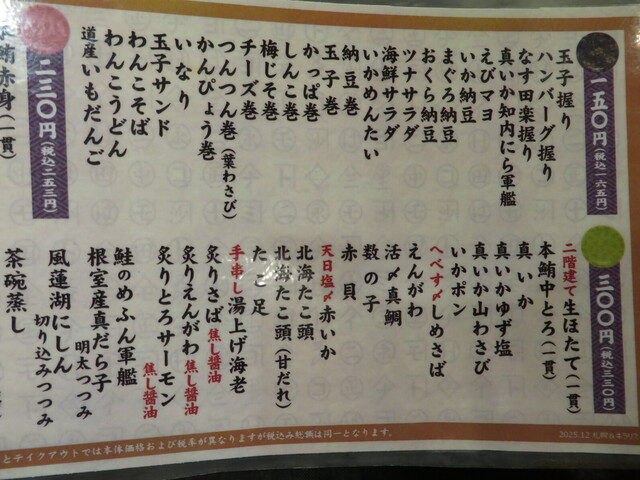 一五〇円(税込一六五円)
玉子握り
ハンバーグ握り
なす田楽握り
真いか知内にら軍艦
えびマヨ
いか納豆
まぐろ納豆
おくら納豆
ツナサラダ
海鮮サラダ
いかめんたい
納豆巻
玉子巻
かっぱ巻
しんこ巻
梅じそ巻
チーズ巻
つんつん巻(葉わさび)
かんぴょう巻
いなり
玉子サンド
わんこそば
わんこうどん
道産いもだんご
二三〇円(税込二五三円)
鮪赤身(一貫)
三〇〇円(税込三三〇円)
二階建て生ほたて(一貫)
本鮪中とろ(一貫)
真いか
真いかゆず塩
真いか山わさび
いかポン
へべす〆しめさば
えんがわ
活〆真鯛
数の子
赤貝
天日塩〆赤いか
北海たこ頭
北海たこ頭(甘だれ)
たこ足
手串し湯上げ海老
炙りさば焦し醤油
炙りえんがわ焦し醤油
炙りとろサーモン焦し醤油
鮭のめふん軍艦
根室産真だら子明太つつみ
風蓮湖にしん切り込みつつみ
茶碗蒸し
とテイクアウトでは本体価格および税率が異なりますが税込み総額は同一となります。
2025.12 札幌